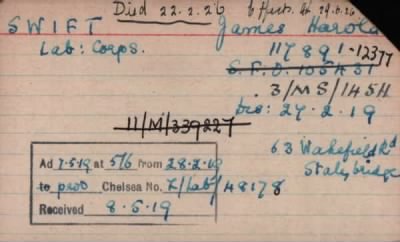 Died 22.2.26
SWIFT James Harold
Lab: Corps. 117891.12377
3/MS/145H
Dis: 27.2.19
11/M/339227
63 Wakefield Rd
Stalybridge
Ad 7.5.19 at 5/6 from 28.2.19
to Chelsea No. Z/Lab/48178
Received 8.5.19